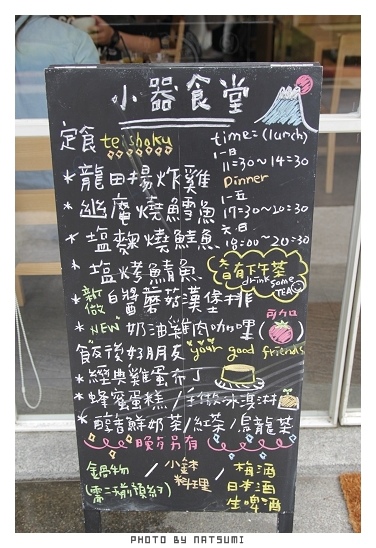 小器食堂
定食 teishoku
time=(lunch)
一-日
11=30~14=30
Dinner
一-五
17=30~20=30
六.日
18=00~20=30
*龍田揚炸雞
*幽庵燒鱈魚
*塩麴燒鮭魚
*塩烤鯖魚
還有下午茶
drink some
TEA
*新做 白醬蘑菇漢堡排
*"NEW" 奶油雞肉咖哩(可加口)
飯後好朋友 your good friends
*經典雞蛋布丁
*蜂蜜蛋糕/手做冰淇淋
*醇香鮮奶茶/紅茶/烏龍茶
晚另有
鍋物 / 小鉢料理 / 梅酒
(需二天前預約)
日本酒
生啤酒
PHOTO BY NATSUMI